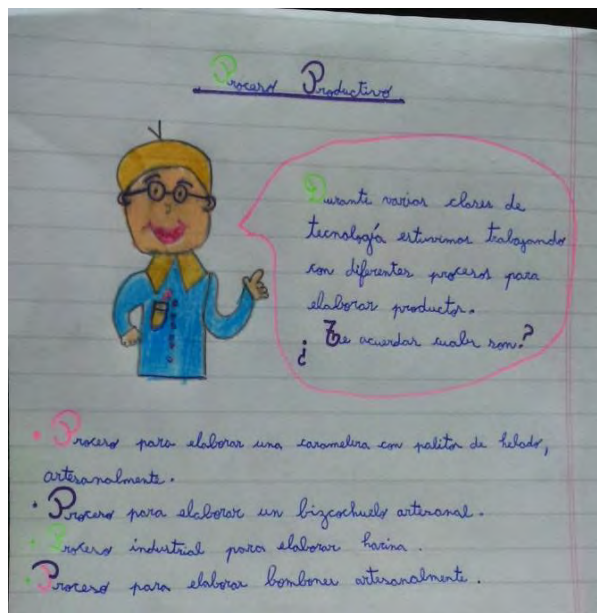 Proceso Productivo
Durante varias clases de
tecnología estuvimos trabajando
con diferentes procesos para
elaborar productos.
¿Te acuerdas cuales son?
• Proceso para elaborar una caramelera con palitos de helado,
artesanalmente.
• Proceso para elaborar un bizcochuelo artesanal.
• Proceso industrial para elaborar harina.
• Proceso para elaborar bombones artesanalmente.